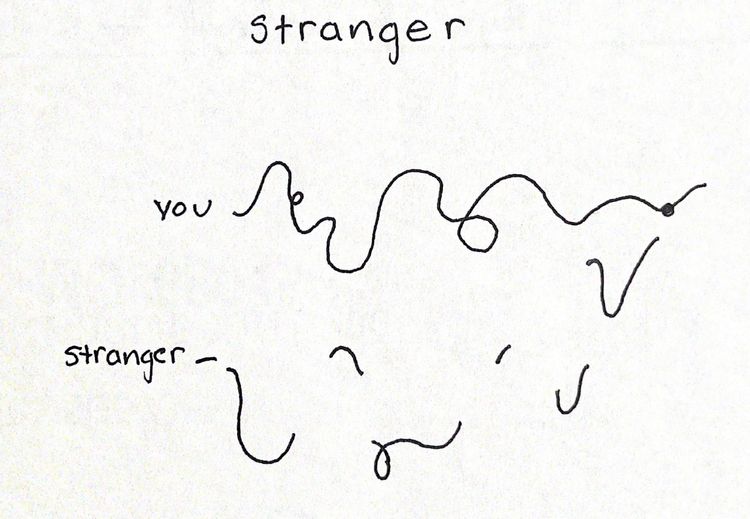 Stranger
you
stranger